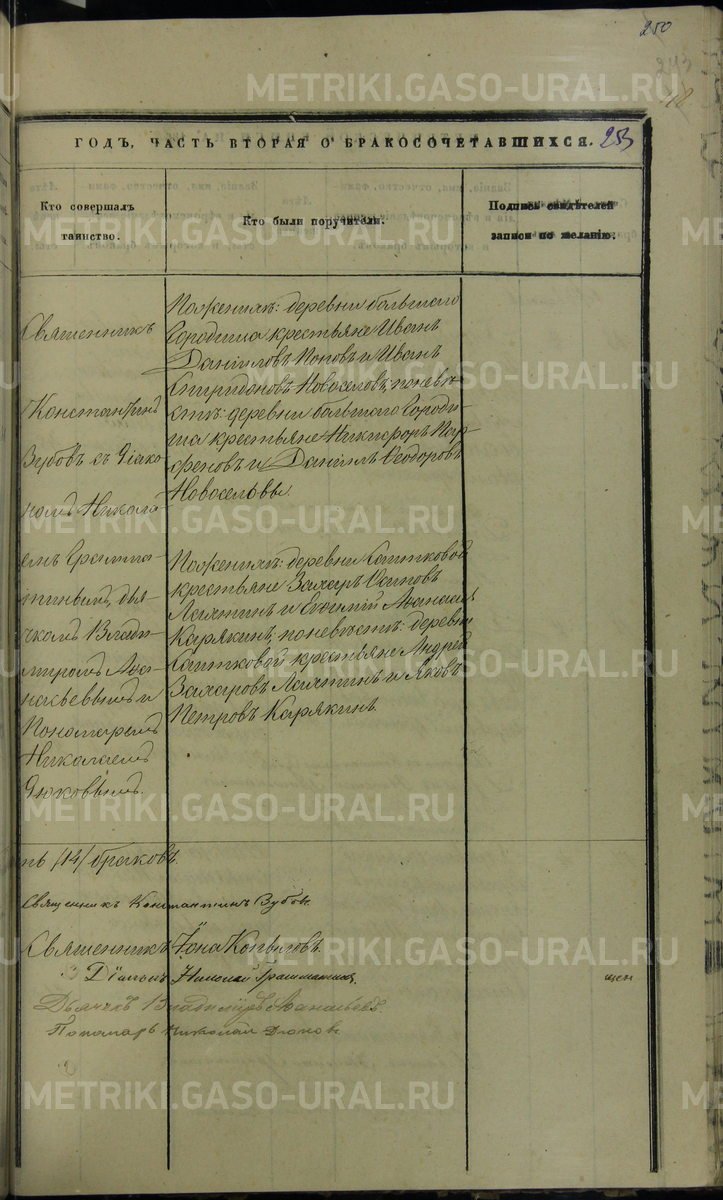 250
243
48
METRIKI.GASO-URAL.RU
ГОДЪ, ЧАСТЬ ВТОРАЯ О БРАКОСОЧЕТАВШИХСЯ.
253
Кто совершалъ
таинство.
Кто были поручители.
Подпись свидѣтелей
записи по желанію.
Священникъ
Константинъ
Зубовъ съ Діако-
номъ Никола-
емъ Грамма-
тинымъ, дья-
чкомъ Влади-
миромъ Афа-
насьевымъ и
Пономаремъ
Николаемъ
Дюковымъ.
По женихѣ: деревни большаго
Городища крестьяне Иванъ
Даниловъ Поповъ и Иванъ
Спиридоновъ Новоселовъ, по невѣ-
стѣ: деревни большаго Городи-
ща крестьяне Никифоръ Пар-
феновъ и Даніилъ Ѳеодоровъ
Новоселовы.
По женихѣ: деревни
крестьяне Захаръ Осиповъ
Лахтинъ и Евѳимій
Карякинъ, по невѣстѣ: деревни
крестьяне Андрей
Захаровъ Лахтинъ и Яковъ
Петровъ Карякинъ.
/14/ браковъ.
Священникъ Константинъ Зубовъ.
Священникъ Іона
Діаконъ Николай
Дьячекъ Владиміръ Афанасьевъ
Пономарь Николай Дюковъ
щен